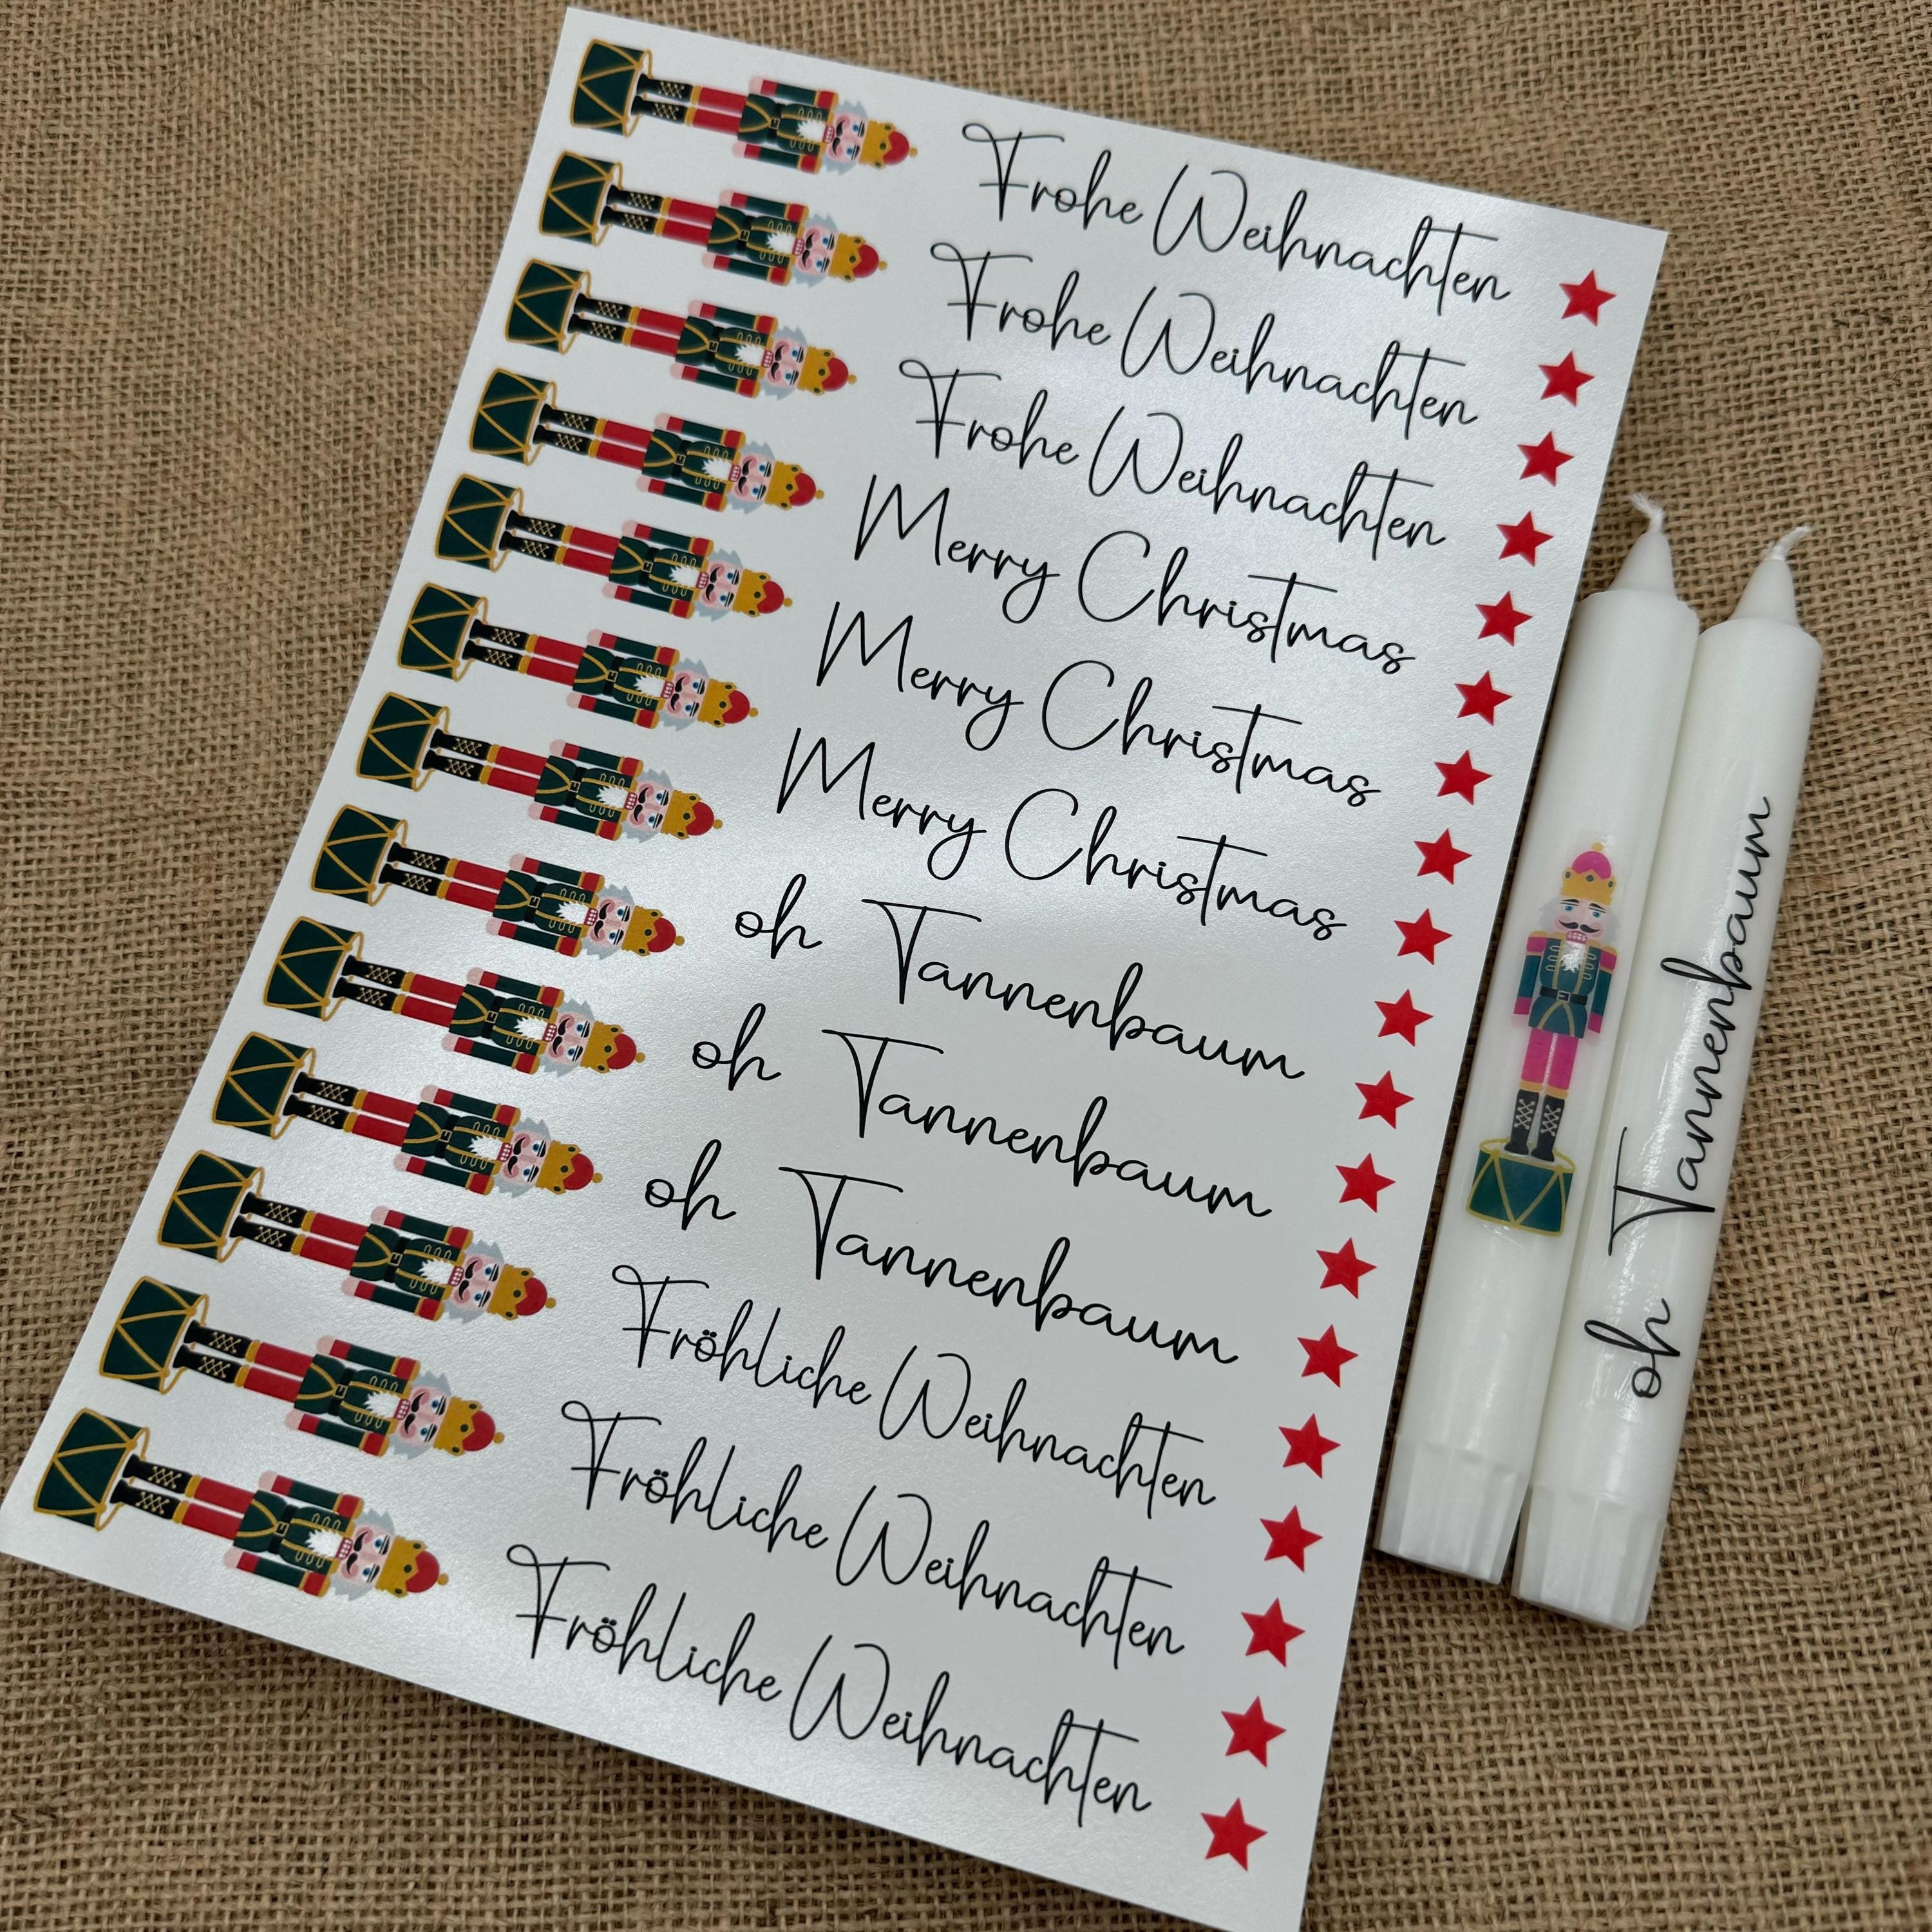 Frohe Weihnachten
Frohe Weihnachten
Frohe Weihnachten
Merry Christmas
Merry Christmas
Merry Christmas
oh Tannenbaum
oh Tannenbaum
oh Tannenbaum
Fröhliche Weihnachten
Fröhliche Weihnachten
Fröhliche Weihnachten
oh Tannenbaum